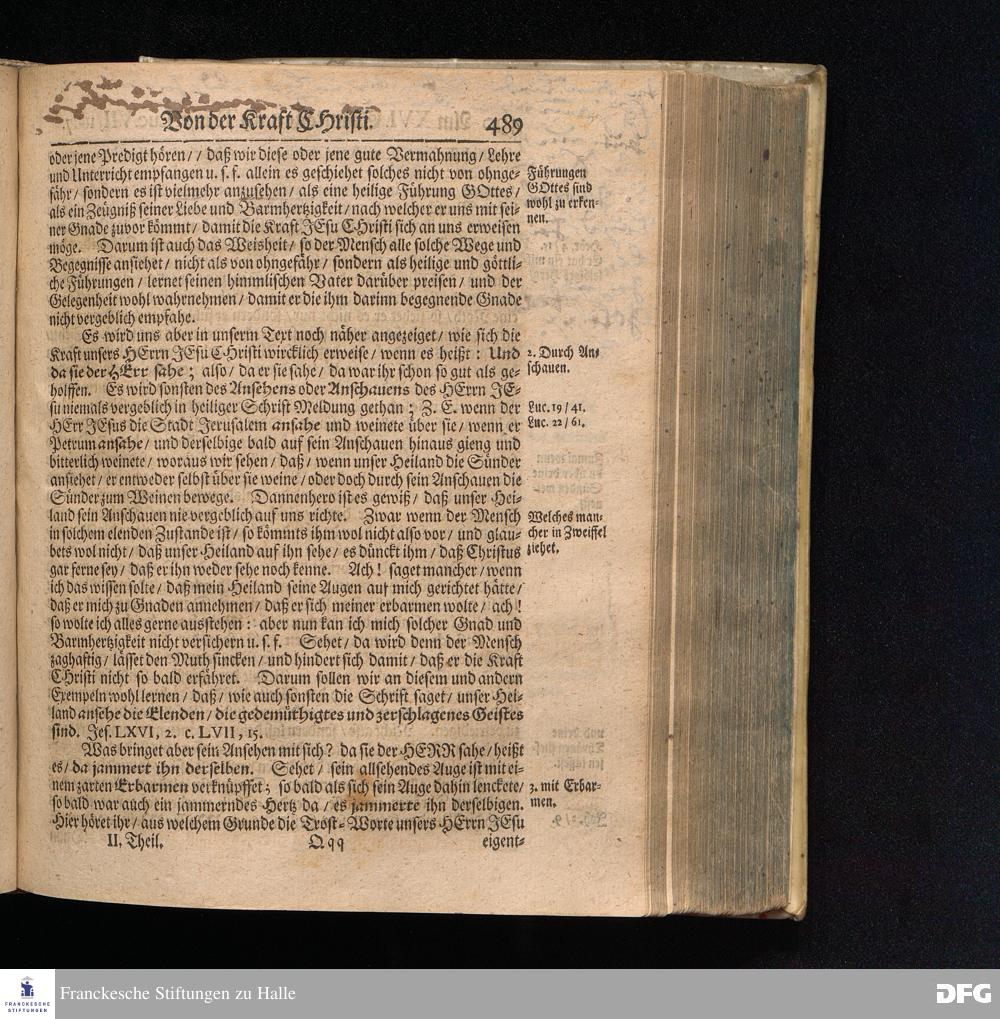 Von der Kraft CHristi. 489
oder jene Predigt hören / / daß wir diese oder jene gute Vermahnung / Lehre
und Unterricht empfangen u. s. f. allein es geschiehet solches nicht von ohnge-
fähr / sondern es ist vielmehr anzusehen / als eine heilige Führung GOttes /
als ein Zeugniß seiner Liebe und Barmhertzigkeit / nach welcher er uns mit sei-
ner Gnade zuvor kömmt / damit die Kraft JEsu CHristi sich an uns erweisen
möge. Darum ist auch das Weisheit / so der Mensch alle solche Wege und
Begegnisse ansiehet / nicht als von ohngefähr / sondern als heilige und göttli-
che Führungen / lernet seinen himmlischen Vater darüber preisen / und der
Gelegenheit wohl wahrnehmen / damit er die ihm darinn begegnende Gnade
nicht vergeblich empfahe.
Führungen
GOttes sind
wohl zu erken-
nen.
Es wird uns aber in unserm Text noch näher angezeiget / wie sich die
Kraft unsers HErrn JEsu CHristi wircklich erweise / wenn es heißt: Und
da sie der HErr sahe; also / da er sie sahe / da war ihr schon so gut als ge-
holffen. Es wird sonsten des Ansehens oder Anschauens des HErrn JE-
su niemals vergeblich in heiliger Schrift Meldung gethan; Z. E. wenn der
HErr JEsus die Stadt Jerusalem ansahe und weinete über sie / wenn er
Petrum ansahe / und derselbige bald auf sein Anschauen hinaus gieng und
bitterlich weinete / woraus wir sehen / daß / wenn unser Heiland die Sünder
ansiehet / er entweder selbst über sie weine / oder doch durch sein Anschauen die
Sünder zum Weinen bewege. Dannenhero ist es gewiß / daß unser Hei-
land sein Anschauen nie vergeblich auf uns richte. Zwar wenn der Mensch
in solchem elenden Zustande ist / so kömmts ihm wol nicht also vor / und glau-
bets wol nicht / daß unser Heiland auf ihn sehe / es dünckt ihm / daß Christus
gar ferne sey / daß er ihn weder sehe noch kenne. Ach! saget mancher / wenn
ich das wissen solte / daß mein Heiland seine Augen auf mich gerichtet hätte /
daß er mich zu Gnaden annehmen / daß er sich meiner erbarmen wolte / ach!
so wolte ich alles gerne ausstehen: aber nun kan ich mich solcher Gnad und
Barmhertzigkeit nicht versichern u. s. f. Sehet / da wird denn der Mensch
zaghaftig / lässet den Muth sincken / und hindert sich damit / daß er die Kraft
CHristi nicht so bald erfähret. Darum sollen wir an diesem und andern
Exempeln wohl lernen / daß / wie auch sonsten die Schrift saget / unser Hei-
land ansehe die Elenden / die gedemüthigtes und zerschlagenes Geistes
sind. Jes. LXVI, 2. c. LVII, 15.
2. Durch An-
schauen.
Luc. 19 / 41.
Luc. 22 / 61.
Welches man-
cher in Zweiffel
ziehet.
Was bringet aber sein Ansehen mit sich? da sie der HERR sahe / heißt
es / da jammert ihn derselben. Sehet / sein allsehendes Auge ist mit ei-
nem zarten Erbarmen verknüpffet; so bald als sich sein Auge dahin lenckete /
so bald war auch ein jammerndes Hertz da / es jammerte ihn derselbigen.
Hier höret ihr / aus welchem Grunde die Trost-Worte unsers HErrn JEsu
3. mit Erbar-
men.
II. Theil. Qqq eigent-
FRANCKESCHE
STIFTUNGEN
Franckesche Stiftungen zu Halle
DFG